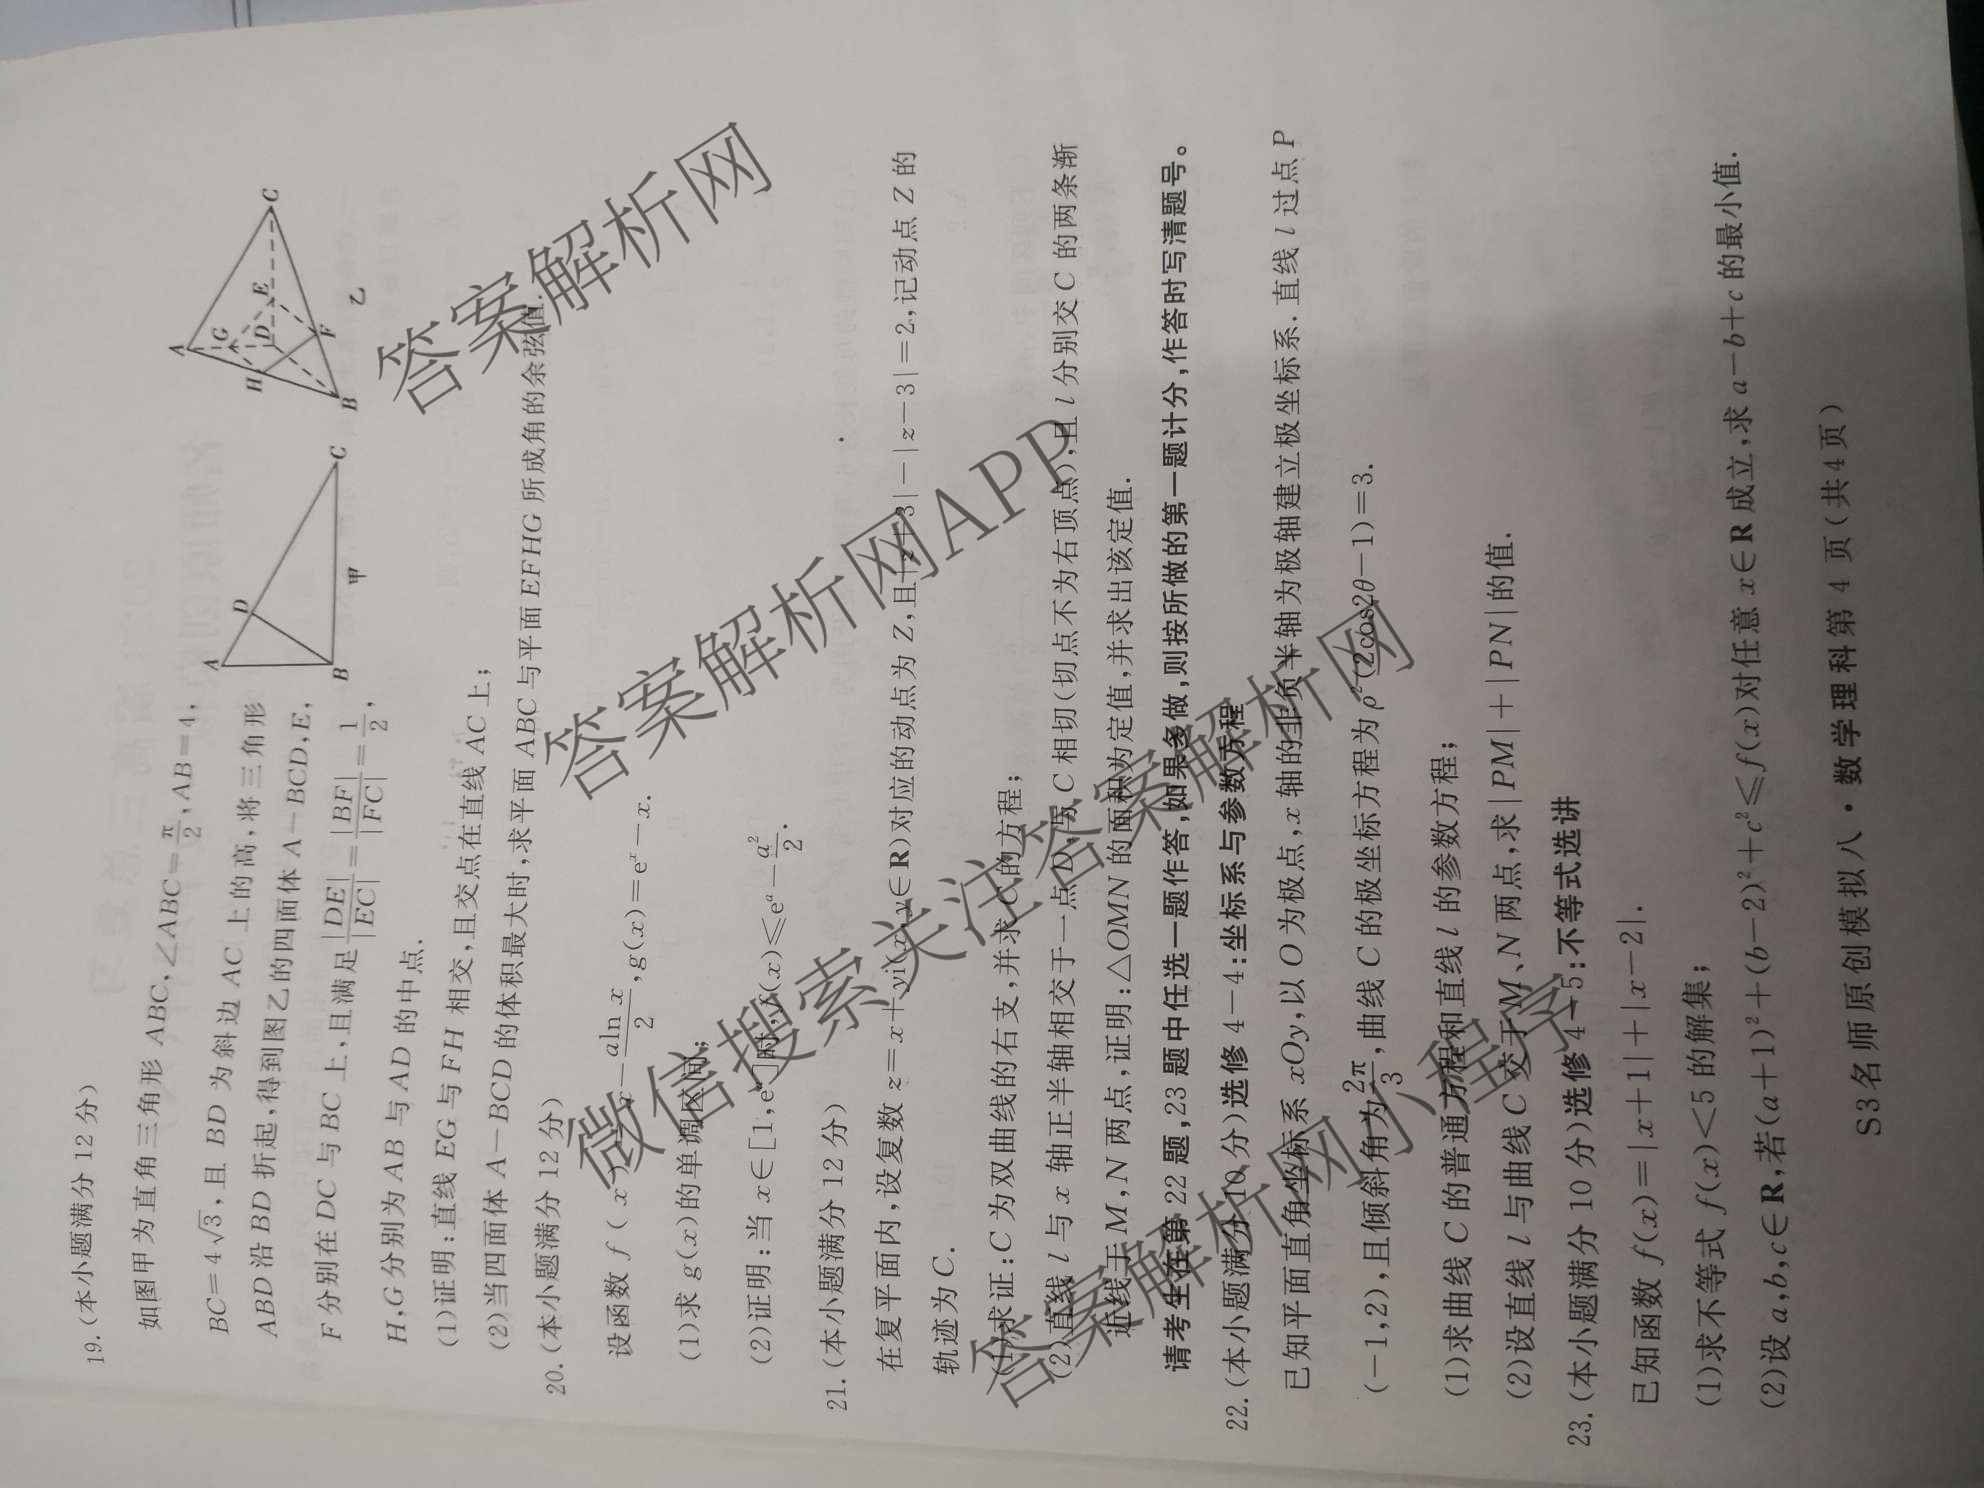 19.(本小题满分 12 分)
如图甲为直角三角形 ABC,∠ABC=π/2,AB=4,
BC=4√3,且 BD 为斜边 AC 上的高,将三角形
ABD 沿 BD 折起,得到图乙的四面体 A-BCD,E,
F 分别在 DC 与 BC 上,且满足|DE|/|EC|=|BF|/|FC|=1/2,
H,G 分别为 AB 与 AD 的中点.
A D B C 甲
A G H D E F B C 乙
(1)证明:直线 EG 与 FH 相交,且交点在直线 AC 上;
(2)当四面体 A-BCD 的体积最大时,求平面 ABC 与平面 EFHG 所成角的余弦值.
20.(本小题满分 12 分)
设函数 f(x) x-aln x/2,g(x)=eˣ-x.
(1)求 g(x)的单调区间;
(2)证明:当 x∈[1,e 时,f(x)≤eᵃ-a²/2.
21.(本小题满分 12 分)
在复平面内,设复数 z=x+yi(x,y∈R)对应的动点为 Z,且|z+3|-|z-3|=2,记动点 Z 的
轨迹为 C.
(1)求证:C 为双曲线的右支,并求 C 的方程;
(2)直线 l 与 x 轴正半轴相交于一点 D,与 C 相切(切点不为右顶点),且 l 分别交 C 的两条渐
近线于 M,N 两点,证明:△OMN 的面积为定值,并求出该定值.
请考生在第 22 题,23 题中任选一题作答,如果多做,则按所做的第一题计分,作答时写清题号。
22.(本小题满分 10 分)选修 4-4:坐标系与参数方程
已知平面直角坐标系 xOy,以 O 为极点,x 轴的非负半轴为极轴建立极坐标系.直线 l 过点 P
(-1,2),且倾斜角为2π/3,曲线 C 的极坐标方程为 ρ²(2cos2θ-1)=3.
(1)求曲线 C 的普通方程和直线 l 的参数方程;
(2)设直线 l 与曲线 C 交于 M、N 两点,求|PM|+|PN|的值.
23.(本小题满分 10 分)选修 4-5:不等式选讲
已知函数 f(x)=|x+1|+|x-2|.
(1)求不等式 f(x)<5 的解集;
(2)设 a,b,c∈R,若(a+1)²+(b-2)²+c²≤f(x)对任意 x∈R 成立,求 a-b+c 的最小值.
S3名师原创模拟八·数学理科第 4 页(共4页)
答案解析网
答案解析网APP
微信搜索关注答案解析网
答案解析网小程序